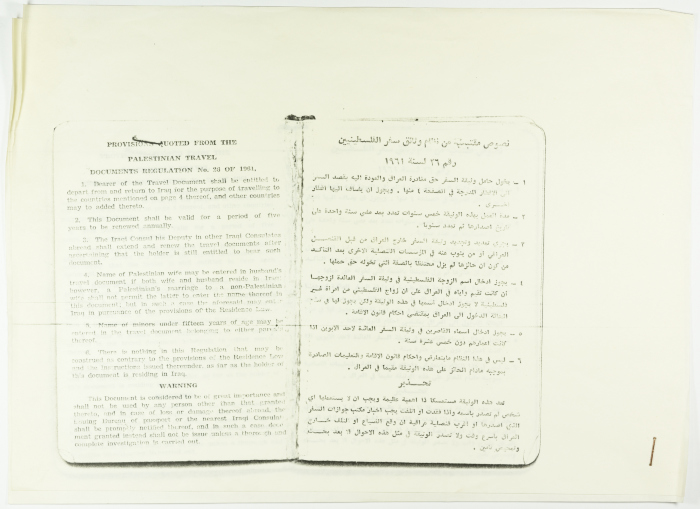 PROVISIONS QUOTED FROM THE
PALESTINIAN TRAVEL
DOCUMENTS REGULATION No. 26 OF 1961.
1. Bearer of the Travel Document shall be entitled to
depart from and return to Iraq for the purpose of travelling to
the countries mentioned on page 4 thereof, and other countries
may be added thereto.
2. This Document shall be valid for a period of five
years to be renewed annually.
3. The Iraqi Consul his Deputy in other Iraqi Consulates
abroad shall extend and renew the travel documents after
ascertaining that the holder is still entitled to have such
document.
4. Name of Palestinian wife may be entered in husband's
travel document if both wife and husband reside in Iraq;
however, a Palestinian's marriage to a non-Palestinian
wife shall not permit the latter to enter the name thereof in
this document; but in such a case the aforesaid may enter
Iraq in pursuance of the provisions of the Residence Law.
5. Name of minors under fifteen years of age may be
entered in the travel document belonging to either parent
thereof.
6. There is nothing in this Regulation that may be
construed as contrary to the provisions of the Residence Law
and the Instructions issued thereunder, as far as the holder of
this document is residing in Iraq.
WARNING
This Document is considered to be of great importance and
shall not be used by any person other than that granted
thereto, and in case of loss or damage thereof abroad, the
Issuing Bureau of passport or the nearest Iraqi Consular
shall be promptly notified thereof, and in such a case
document granted instead shall not be issue unless a thorough and
complete investigation is carried out.
نصوص مقتبسة من نظام وثائق سفر الفلسطينيين
رقم ٢٦ لسنة ١٩٦١
١ – يخول حامل وثيقة السفر حق مغادرة العراق والعودة اليه بقصد السفر
الى الاقطار المدرجة في الصفحة ٤ منها . ويجوز ان يضاف اليها اقطار
اخرى .
٢ – مدة العمل بهذه الوثيقة خمس سنوات تجدد بعد مضي سنة واحدة على
تاريخ اصدارها ثم تجدد سنويا .
٣ – يجري تمديد وتجديد وثيقة السفر خارج العراق من قبل القنصل
العراقي او من ينوب عنه في المؤسسات القنصلية الاخرى بعد التأكد
من كون ان حائزها لم يزل محتفظا بالصفة التي تخوله حق حملها .
٤ – يجوز ادخال اسم الزوجة الفلسطينية في وثيقة السفر العائدة لزوجها
ان كانت تقيم واياه في العراق على ان زواج الفلسطيني من امرأة غير
فلسطينية لا يجوز ادخال اسمها في هذه الوثيقة ولكن يجوز لها في مثل
الحالة الدخول الى العراق بمقتضى احكام قانون الاقامة .
٥ – يجوز ادخال اسماء القاصرين في وثيقة السفر العائدة لاحد الابوين اذا
كانت اعمارهم دون خمس عشرة سنة .
٦ – ليس في هذا النظام ما يتعارض واحكام قانون الاقامة والتعليمات الصادرة
بموجبه مادام الحائز على هذه الوثيقة مقيما في العراق .
تحذير
تعد هذه الوثيقة مستمسكا ذا اهمية عظيمة ويجب ان لا يستعملها اي
شخص لم تصدر باسمه واذا فقدت او اتلفت يجب اخبار مكتب جوازات السفر
الذي اصدرها او اقرب قنصلية عراقية ان وقع الضياع او التلف خارج
العراق باسرع وقت ولا تصدر الوثيقة في مثل هذه الاحوال الا بعد بحث